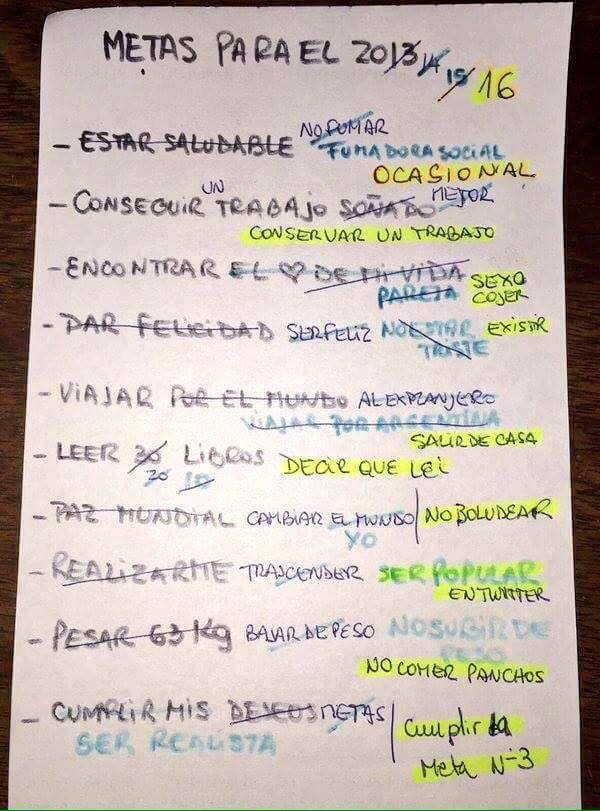 METAS PARA EL 2013 14 15 16
- ESTAR SALUDABLE NO FUMAR
FUMADORA SOCIAL
OCASIONAL
- CONSEGUIR UN TRABAJO SOÑADO MEJOR
CONSERVAR UN TRABAJO
- ENCONTRAR EL ♡ DE MI VIDA SEXO
PAREJA COJER
- DAR FELICIDAD SER FELIZ NO ESTAR EXISTIR
TRISTE
- VIAJAR POR EL MUNDO AL EXTRANJERO
VIAJAR POR ARGENTINA
SALIR DE CASA
- LEER 30 LIBROS DECIR QUE LEI
20 10
- PAZ MUNDIAL CAMBIAR EL MUNDO NO BOLUDEAR
YO
- REALIZARME TRASCENDER SER POPULAR
EN TWITTER
- PESAR 63 Kg BAJAR DE PESO NO SUBIR DE
PESO
NO COMER PANCHOS
- CUMPLIR MIS DESEOS METAS Cumplir la
SER REALISTA
Meta N-3